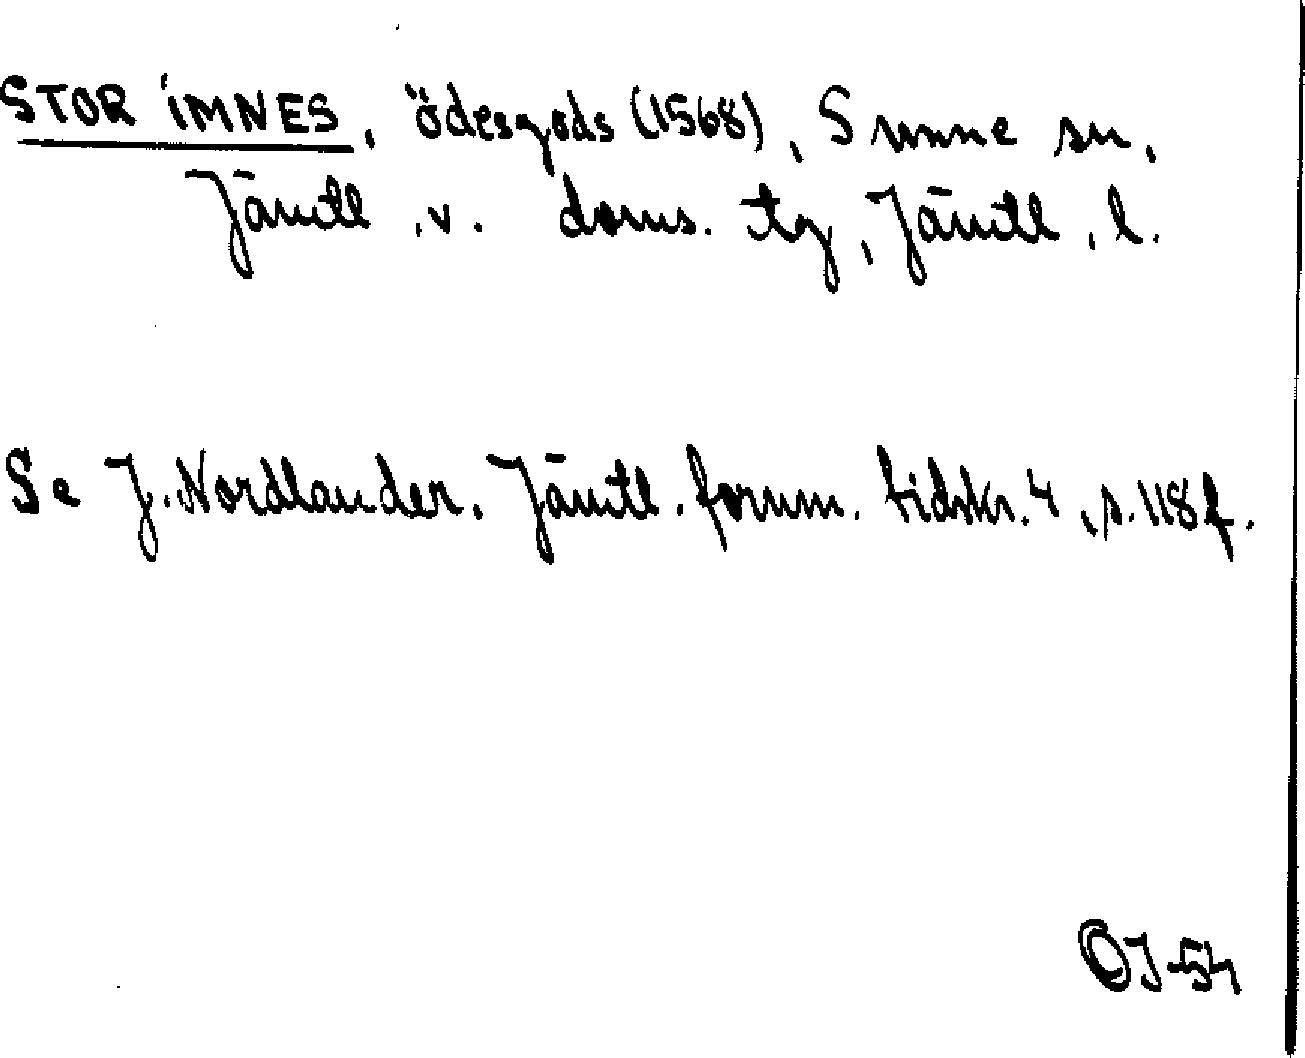 STOR IMNES, ödesgods (1568), Sunne sn,
Jämtl. v. doms. tg, Jämtl. l.
Se J. Nordlander. Jämtl. fornm. tidskr. 4, s. 118 f.
OJ-54